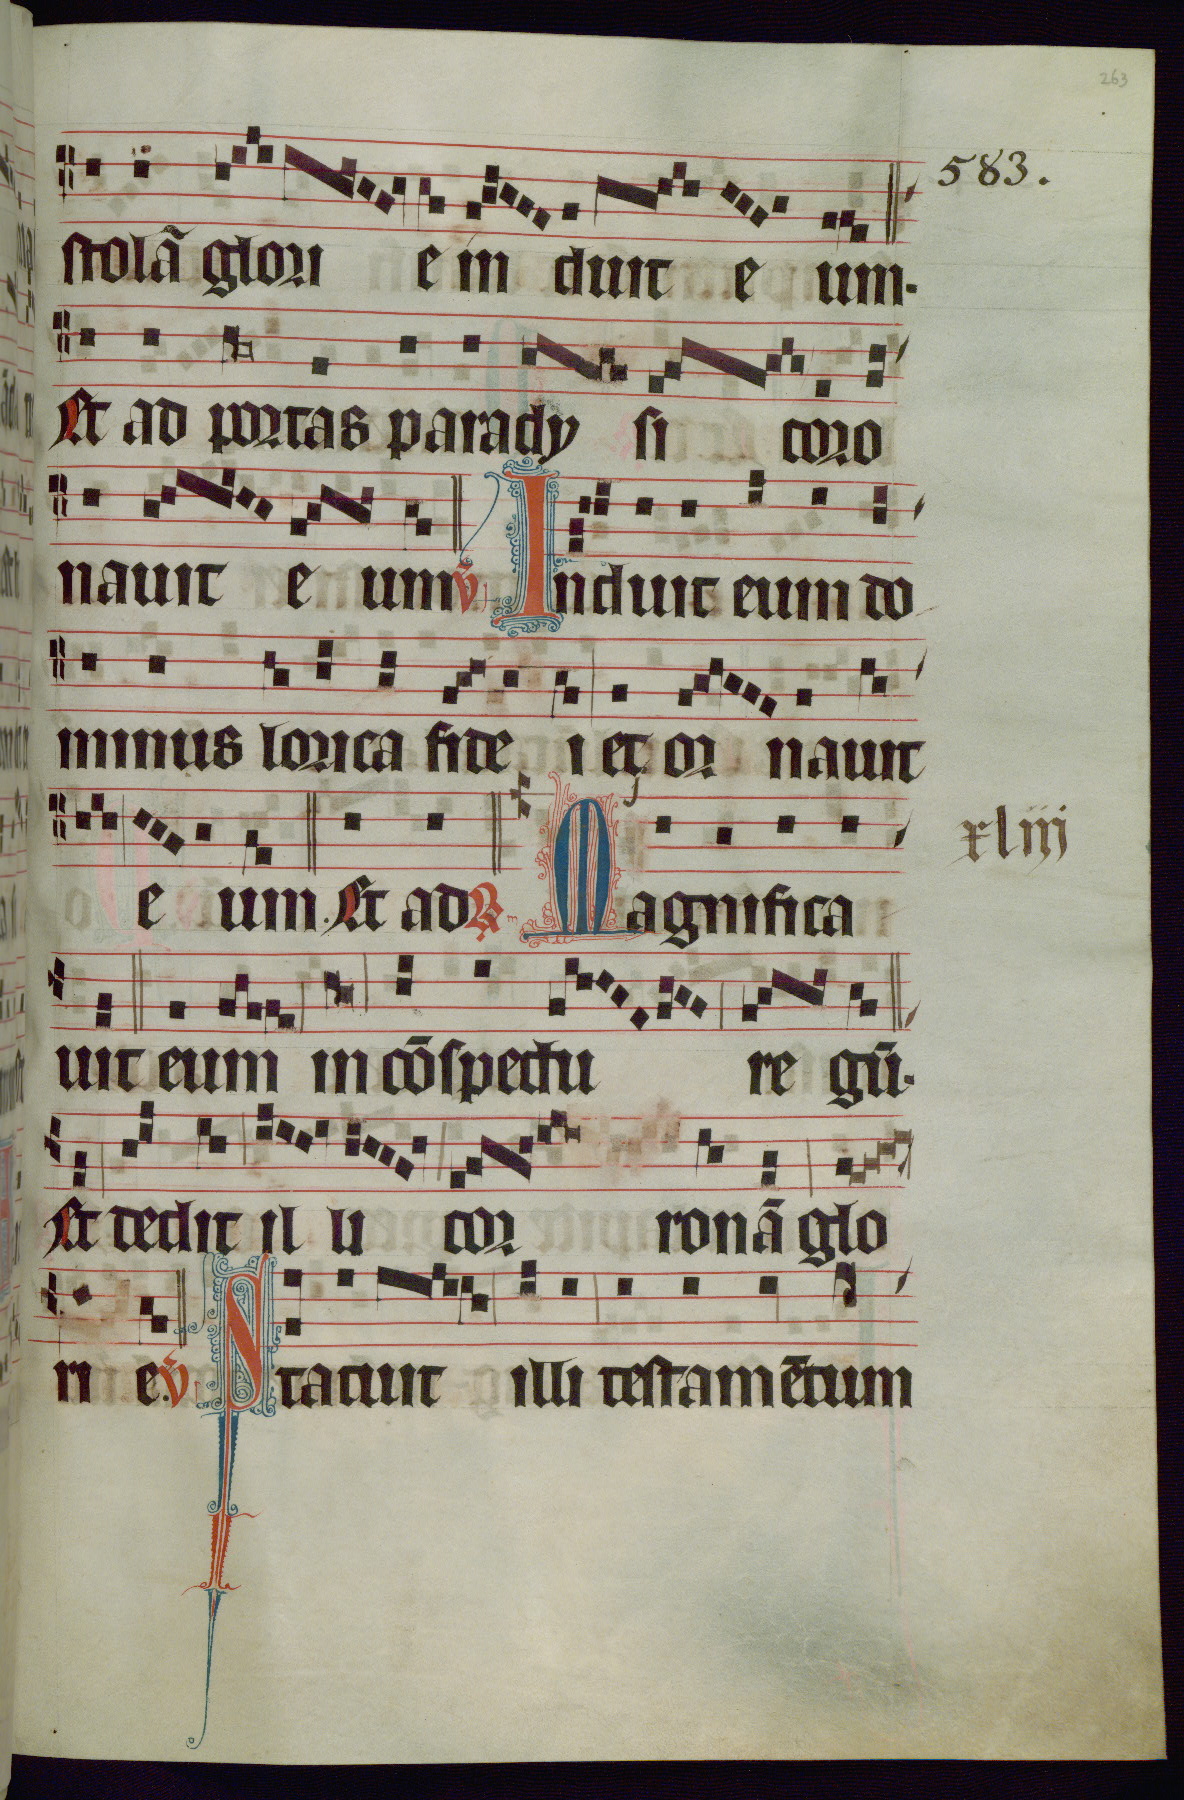 263
583.
stolā glori e in duit e um.
Et ad portas parady si coro
nauit e um v̄ Induit eum do
minus lorica fide i et or nauit
xliij
e um. Et ad R Magnifica
uit eum in cōspectu re gū.
Et dedit il li cor ronā glo
ri e. v̄ Statuit illi testamētum